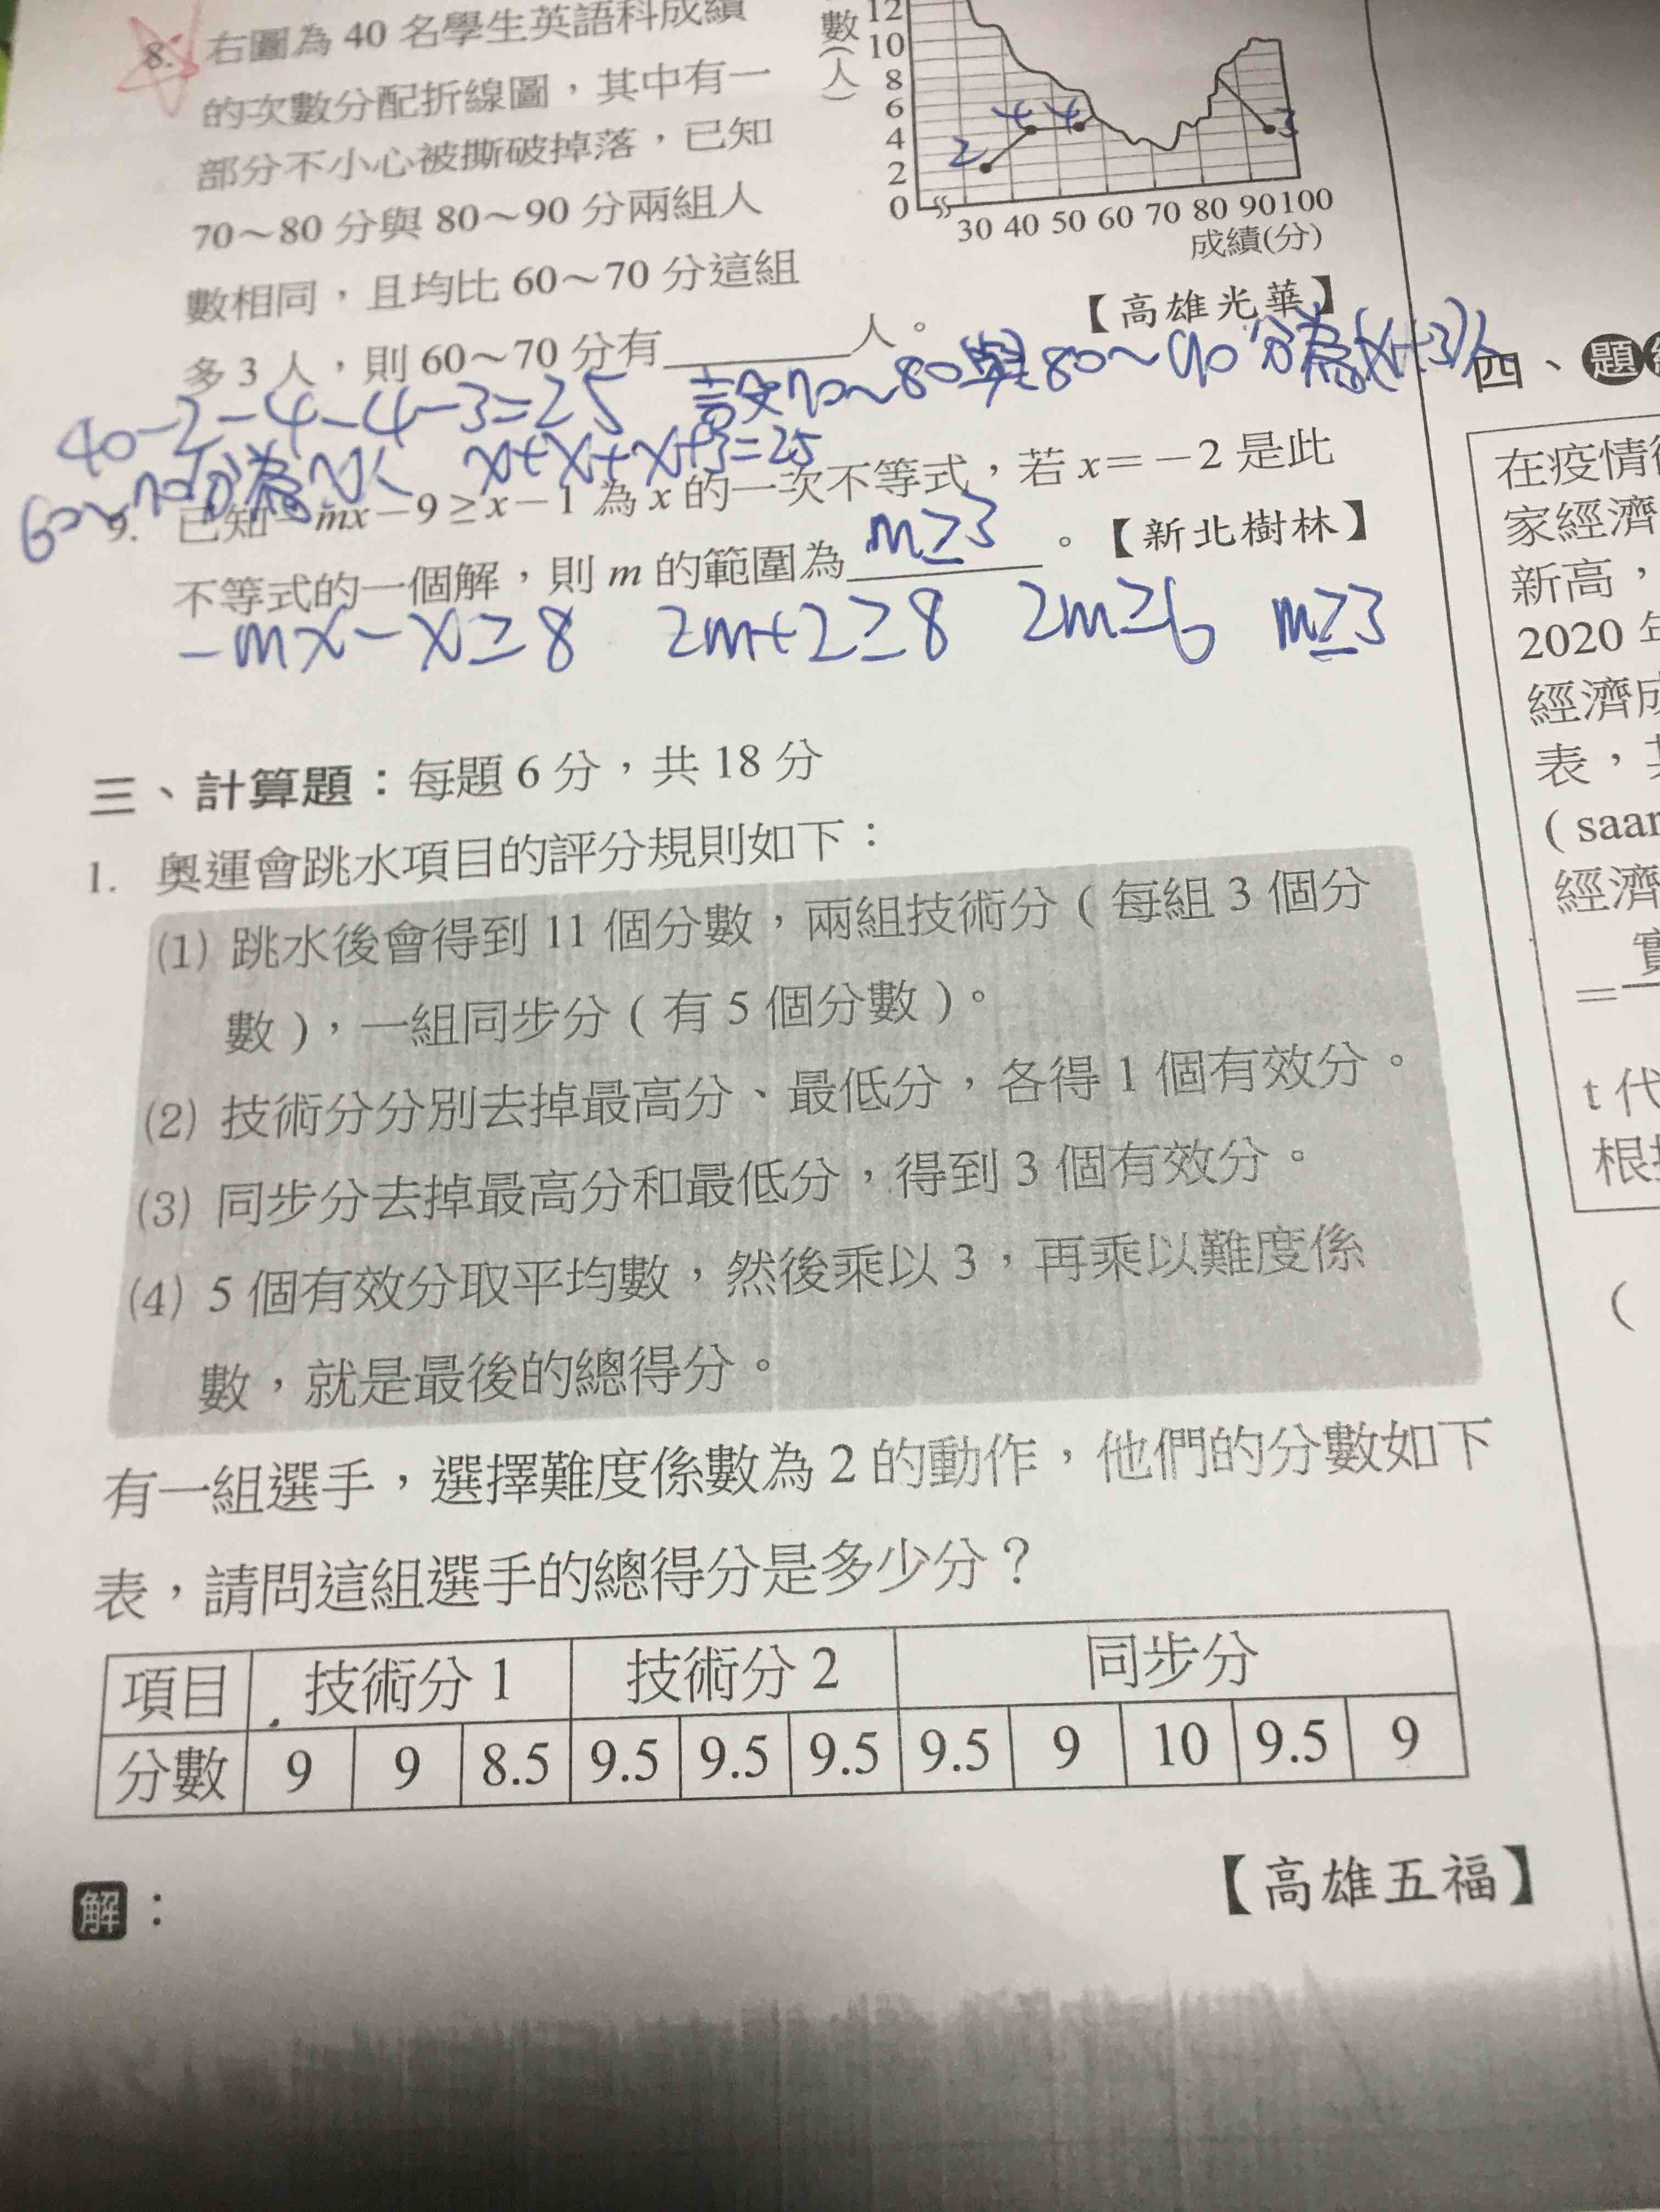 8. 右圖為 40 名學生英語科成績
的次數分配折線圖，其中有一
部分不小心被撕破掉落，已知
70～80 分與 80～90 分兩組人
數相同，且均比 60～70 分這組
多 3 人，則 60～70 分有______人。
【高雄光華】
數(人)
12
10
8
6
4
2
0
2 4 4 3
30 40 50 60 70 80 90 100
成績(分)
40-2-4-4-3=25 設70～80與80～90分為(x+3)人
60～70分為x人 x+x+x+3=25
9. 已知－mx－9≥x－1 為 x 的一次不等式，若 x=－2 是此
不等式的一個解，則 m 的範圍為 m≥3 。【新北樹林】
-mx-x≥8 2m+2≥8 2m≥6 m≥3
三、計算題：每題 6 分，共 18 分
1. 奧運會跳水項目的評分規則如下：
(1) 跳水後會得到 11 個分數，兩組技術分（每組 3 個分
數），一組同步分（有 5 個分數）。
(2) 技術分分別去掉最高分、最低分，各得 1 個有效分。
(3) 同步分去掉最高分和最低分，得到 3 個有效分。
(4) 5 個有效分取平均數，然後乘以 3，再乘以難度係
數，就是最後的總得分。
有一組選手，選擇難度係數為 2 的動作，他們的分數如下
表，請問這組選手的總得分是多少分？
項目 技術分 1 技術分 2 同步分
分數 9 9 8.5 9.5 9.5 9.5 9.5 9 10 9.5 9
【高雄五福】
解：
四、題
在疫情
家經濟
新高，
2020 年
經濟成
表，
(saar
經濟
實
=
t 代
根據
(